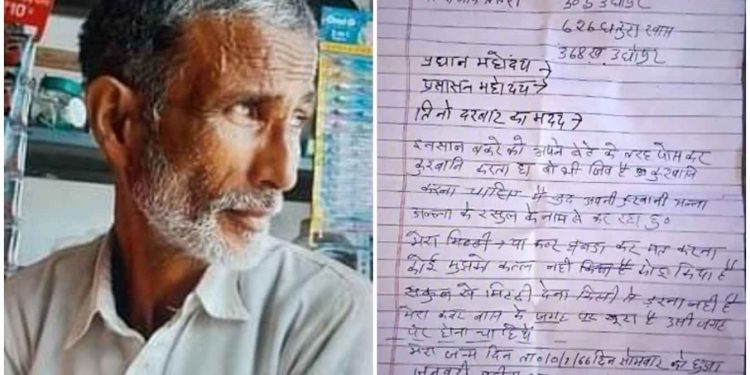 ₹10
626 धतुरा खास
368 ख उधोपुर
प्रधान महोदय →
प्रसासन महोदय →
तिनो दरबार का मदद →
इनसान बकरे को अपने बेटे के तरह पोस कर
कुरबानि करता है वो भी जिव है कुरबानि
करना चाहिए मै खुद अपनी कुरबानी अल्ला
अल्ला के रसुल के नाम से कर रहा हु०
मेरा मिट्टी → या कबर घबडा कर मत करना
कोई मुझको कत्ल नही किया है
सकुन से मिट्टी देना किसी से डरना नही है
मेरा कबर बास के जगह पर खुटा है उसी जगह
पर होना चाहिये
मेरा जन्म दिन ता० दिन सोमवार को हुआ